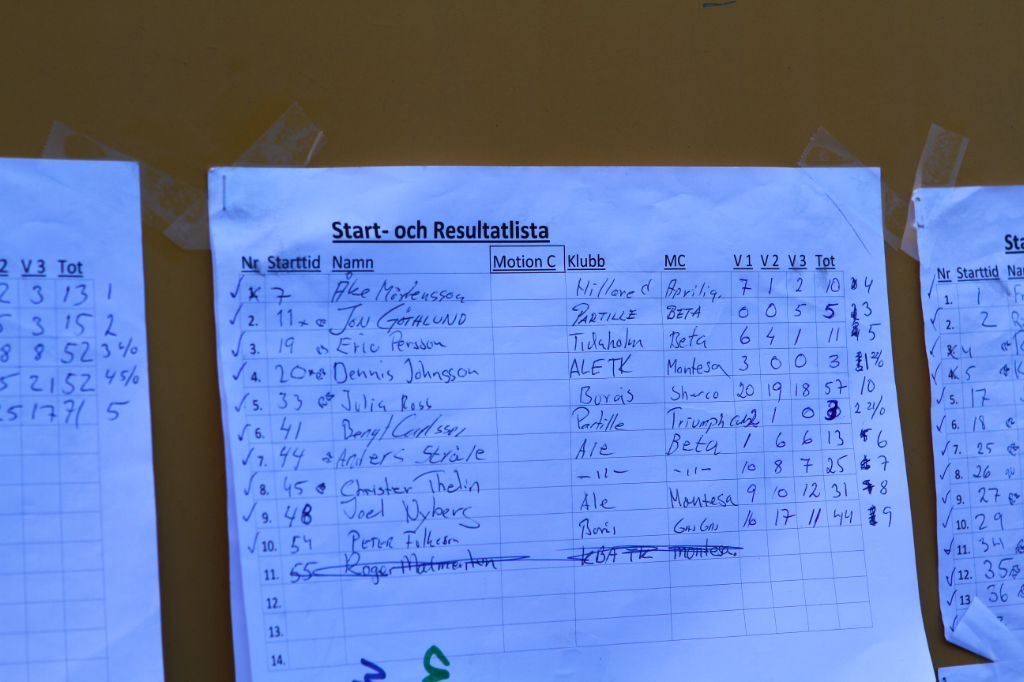 2 V 3 Tot
2 3 13 1
5 3 15 2
8 8 52 3 %
5 21 52 4 5/0
25 17 71 5
Start- och Resultatlista
Nr Starttid Namn Motion C Klubb MC V 1 V 2 V 3 Tot
7 Åke Mårtensson Hillared Aprilia 7 1 2 10 4
2. 11 Jon Göthlund Partille Beta 0 0 5 5 3
3. 19 Eric Persson Tidaholm Beta 6 4 1 11 5
4. 20 Dennis Johnsson ALETK Montesa 3 0 0 3
5. 33 Julia Ross Borås Sherco 20 19 18 57 10
6. 41 Bengt Carlsson Partille Triumph Cub 2 1 0 3 2
7. 44 Anders Stråle Ale Beta 1 6 6 13 6
8. 45 Christer Thelin -11- -11- 10 8 7 25 7
9. 48 Joel Nyberg Ale Montesa 9 10 12 31 8
10. 54 Peter Folkeson Borås GasGas 16 17 11 44 9
11. 55 Roger KBA TK montesa.
12.
13.
14.
Sta
Nr Starttid Namn
1. 1
2. 2
4
5
5. 17
6. 18
7. 25
8. 26
9. 27
10. 29
11. 34
12. 35
13 36